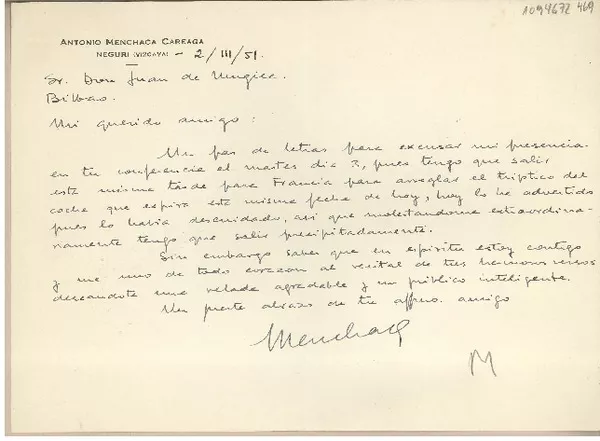 1094672 469
ANTONIO MENCHACA CAREAGA
NEGURI (VIZCAYA) - 2/III/51.
Sr. Don Juan de Mugica.
Bilbao.
Mi querido amigo:
Un par de letras para excusar mi presencia
en tu conferencia el martes dia 3, pues tengo que salir
esta misma tarde para Francia para arreglar el triptico del
coche que espira esta misma fecha de hoy, hoy lo he advertido
pues lo habia descuidado, asi que molestandome extraordina-
riamente tengo que salir precipitadamente.
Sin embargo saber que en espiritu estoy contigo
y me uno de todo corazon al recital de tus hermosos versos
deseandote una velada agradable y un público inteligente.
Un fuerte abrazo de tu affmo. amigo
Menchaca
M